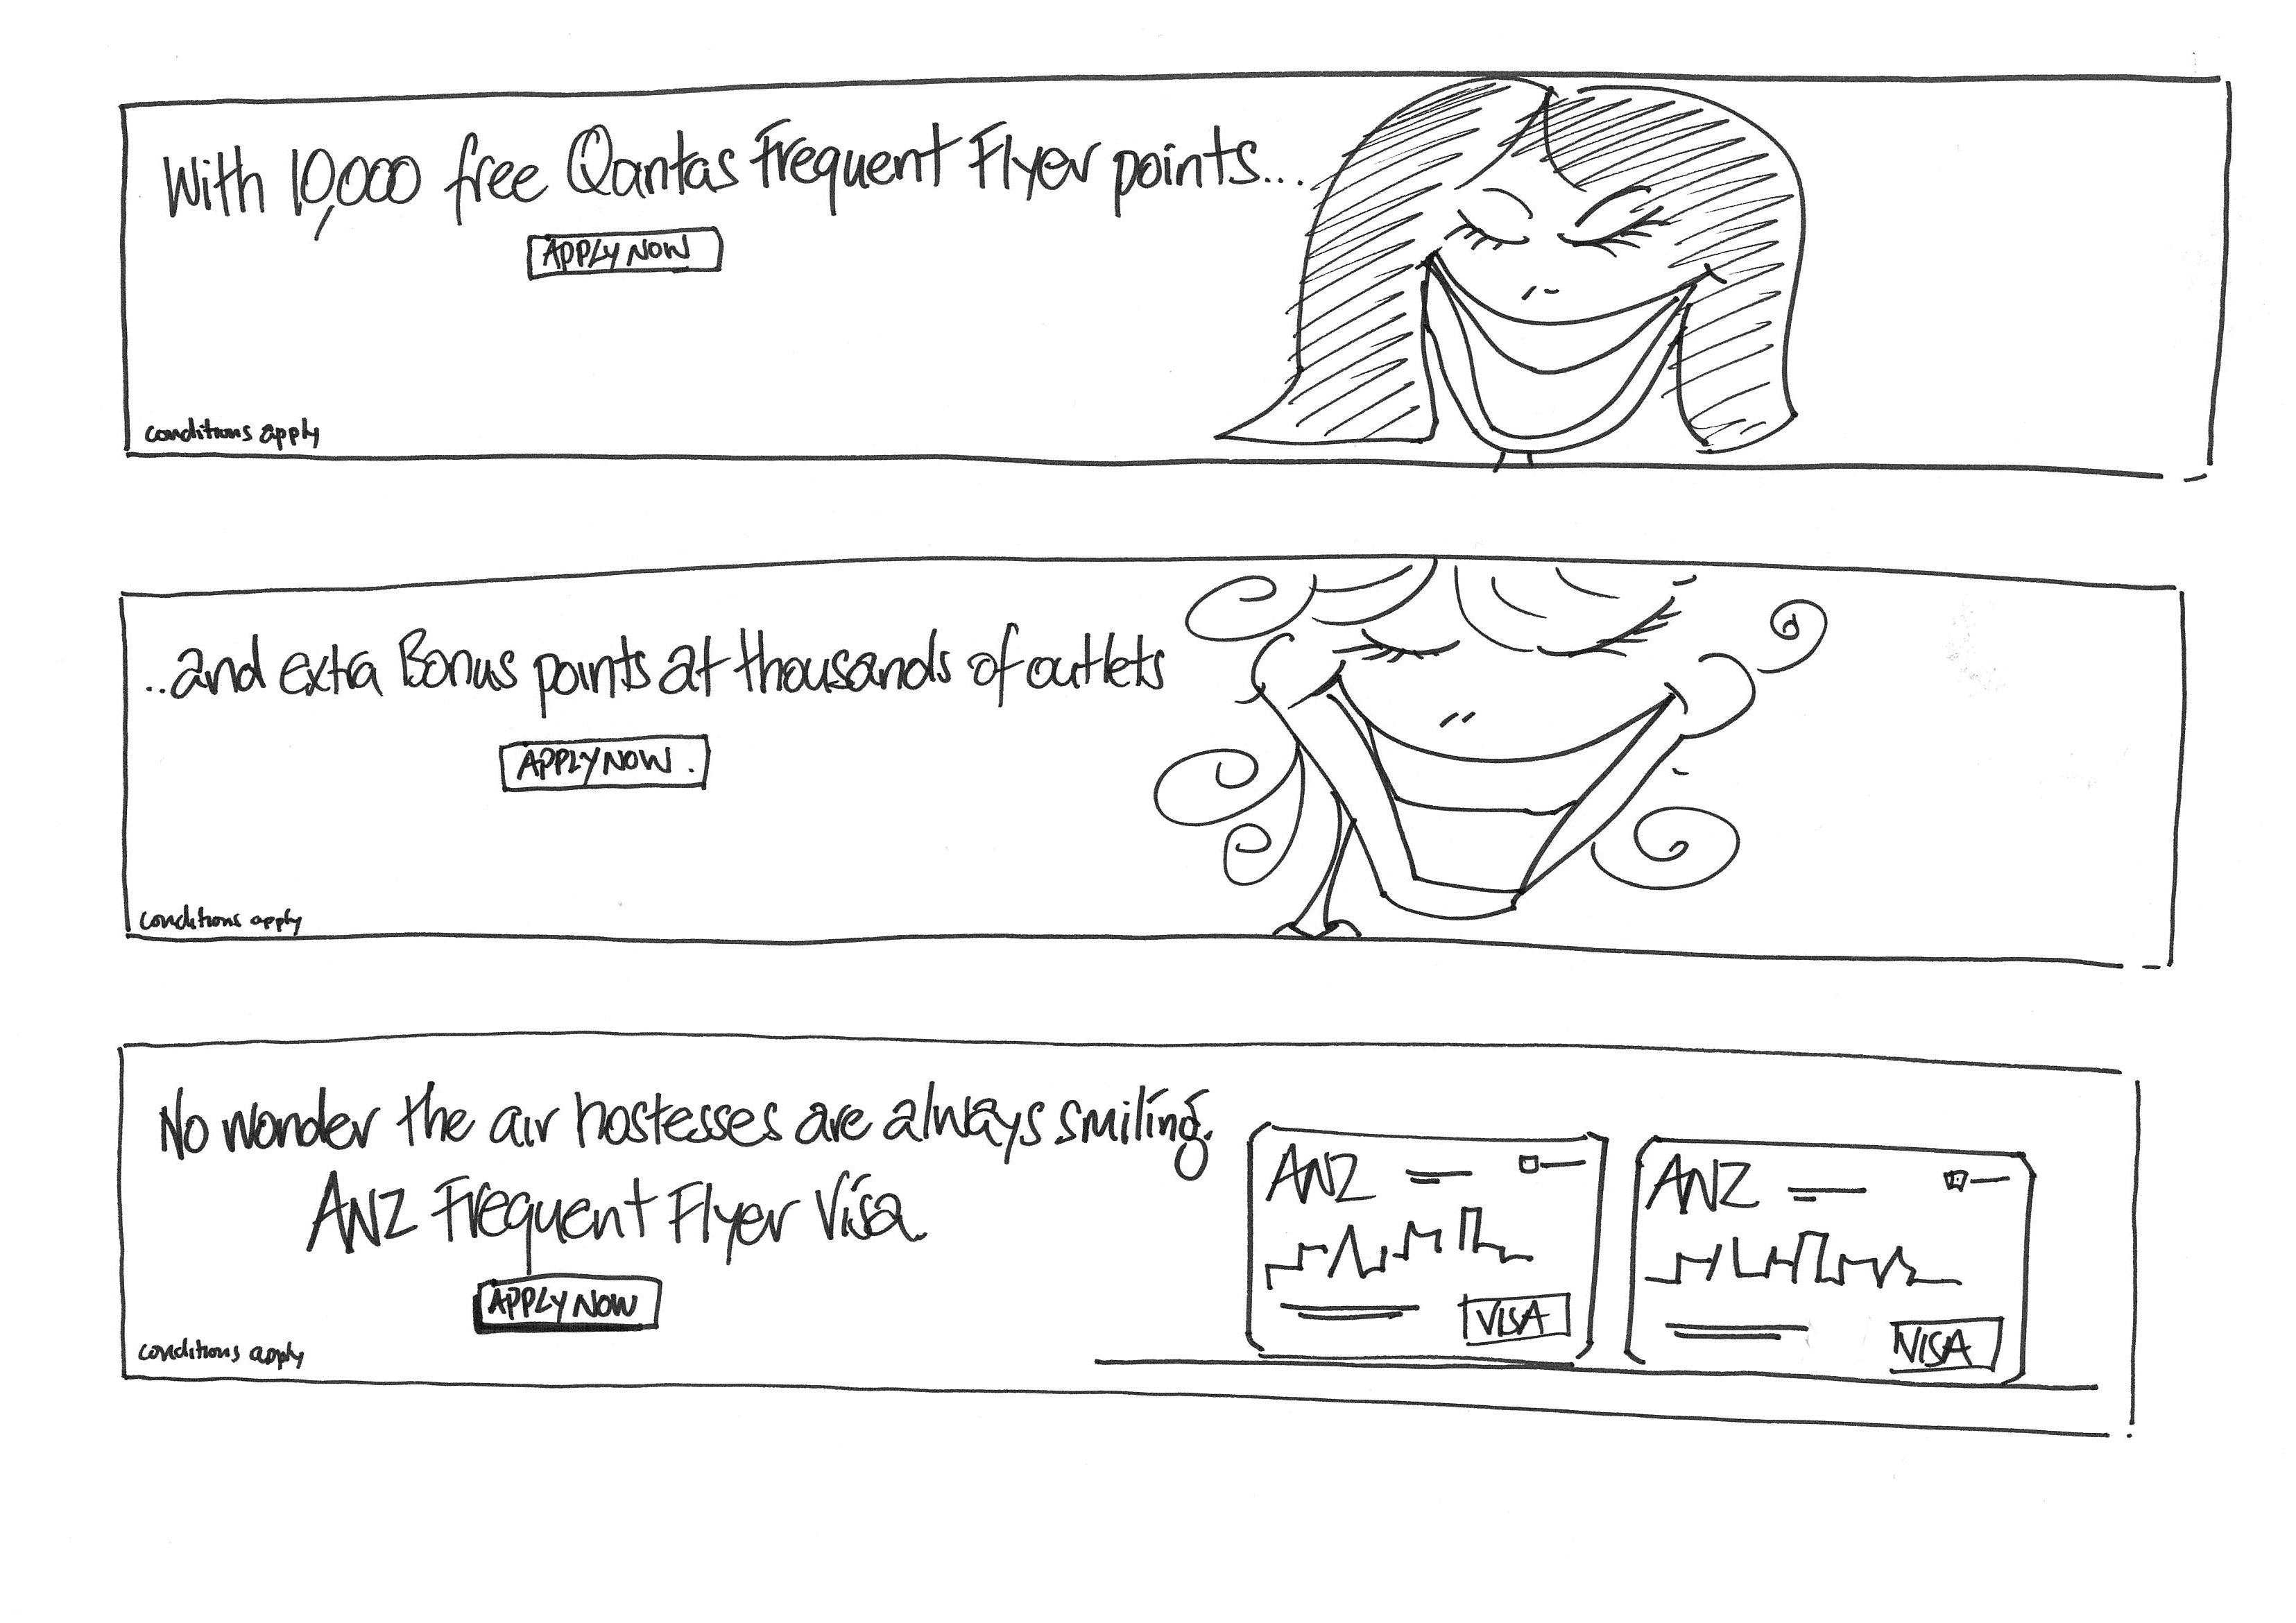 With 10,000 free Qantas Frequent Flyer points...
APPLY NOW
conditions apply
..and extra Bonus points at thousands of outlets
APPLY NOW.
conditions apply
No wonder the air hostesses are always smiling.
ANZ Frequent Flyer Visa.
APPLY NOW
conditions apply
ANZ
VISA
ANZ
VISA